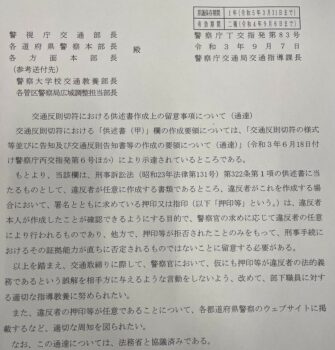 原議保存期間 1年(令和5年3月31日まで)
有効期間 二種(令和4年9月6日まで)
警視庁交通部長
各道府県警察本部長 殿
各方面本部長
(参考送付先)
警察大学校交通教養部長
各管区警察局広域調整担当部長
警察庁丁交指発第83号
令和3年9月7日
警察庁交通局交通指導課長
交通反則切符における供述書作成上の留意事項について(通達)
交通反則切符における「供述書(甲)」欄の作成要領については、「交通反則切符の様式
等並びに告知及び交通反則告知書等の作成の要領について(通達)」(令和3年6月18日付
け警察庁丙交指発第6号ほか)により示達されているところである。
もとより、当該欄は、刑事訴訟法(昭和23年法律第131号)第322条第1項の供述書に当
たるものとして、違反者が任意に作成する書類であるところ、違反者がこれを作成する場
合において、署名とともに求めている押印又は指印(以下「押印等」という。)は、違反者
本人が作成したことが確認できるようにする目的で、警察官の求めに応じて違反者の任意
により行われるものであり、他方で、押印等が拒否されたことのみをもって、刑事手続に
おけるその証拠能力が直ちに否定されるものではないことに留意する必要がある。
以上を踏まえ、交通取締りに際して、警察官において、仮にも押印等が違反者の法的義
務であるという誤解を相手方に与えるような言動をしないよう、改めて、部下職員に対す
る適切な指導教養に努められたい。
また、違反者の押印等が任意であることについて、各都道府県警察のウェブサイトに掲
載するなど、適切な周知を図られたい。
なお、この通達については、法務省と協議済みである。